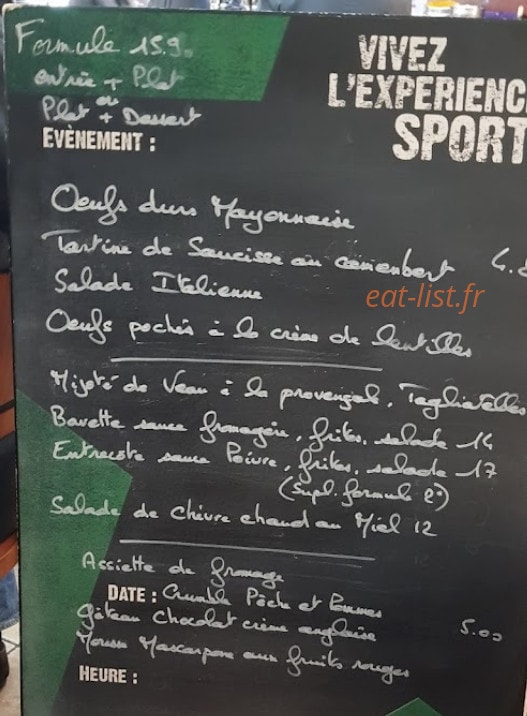 Formule 15.9
entrée + Plat
ou
Plat + Dessert
VIVEZ
L'EXPERIENC
SPORT
EVÈNEMENT :
Oeufs durs Mayonnaise
Tartine de Saucisse au camembert
Salade Italienne
eat-list.fr
Oeufs pochés à la crème de lentilles
Mijoté de Veau à la provençal, Tagliatelles
Bavette sauce fromagère, frites, salade 14
Entrecôte sauce Poivre, frites, salade 17
(Supl. formule 2€)
Salade de chèvre chaud au Miel 12
Assiette de fromage
DATE : Crumble Pêche et Pommes
Gâteau chocolat crème anglaise 5.00
Mousse Mascarpone aux fruits rouges
HEURE :